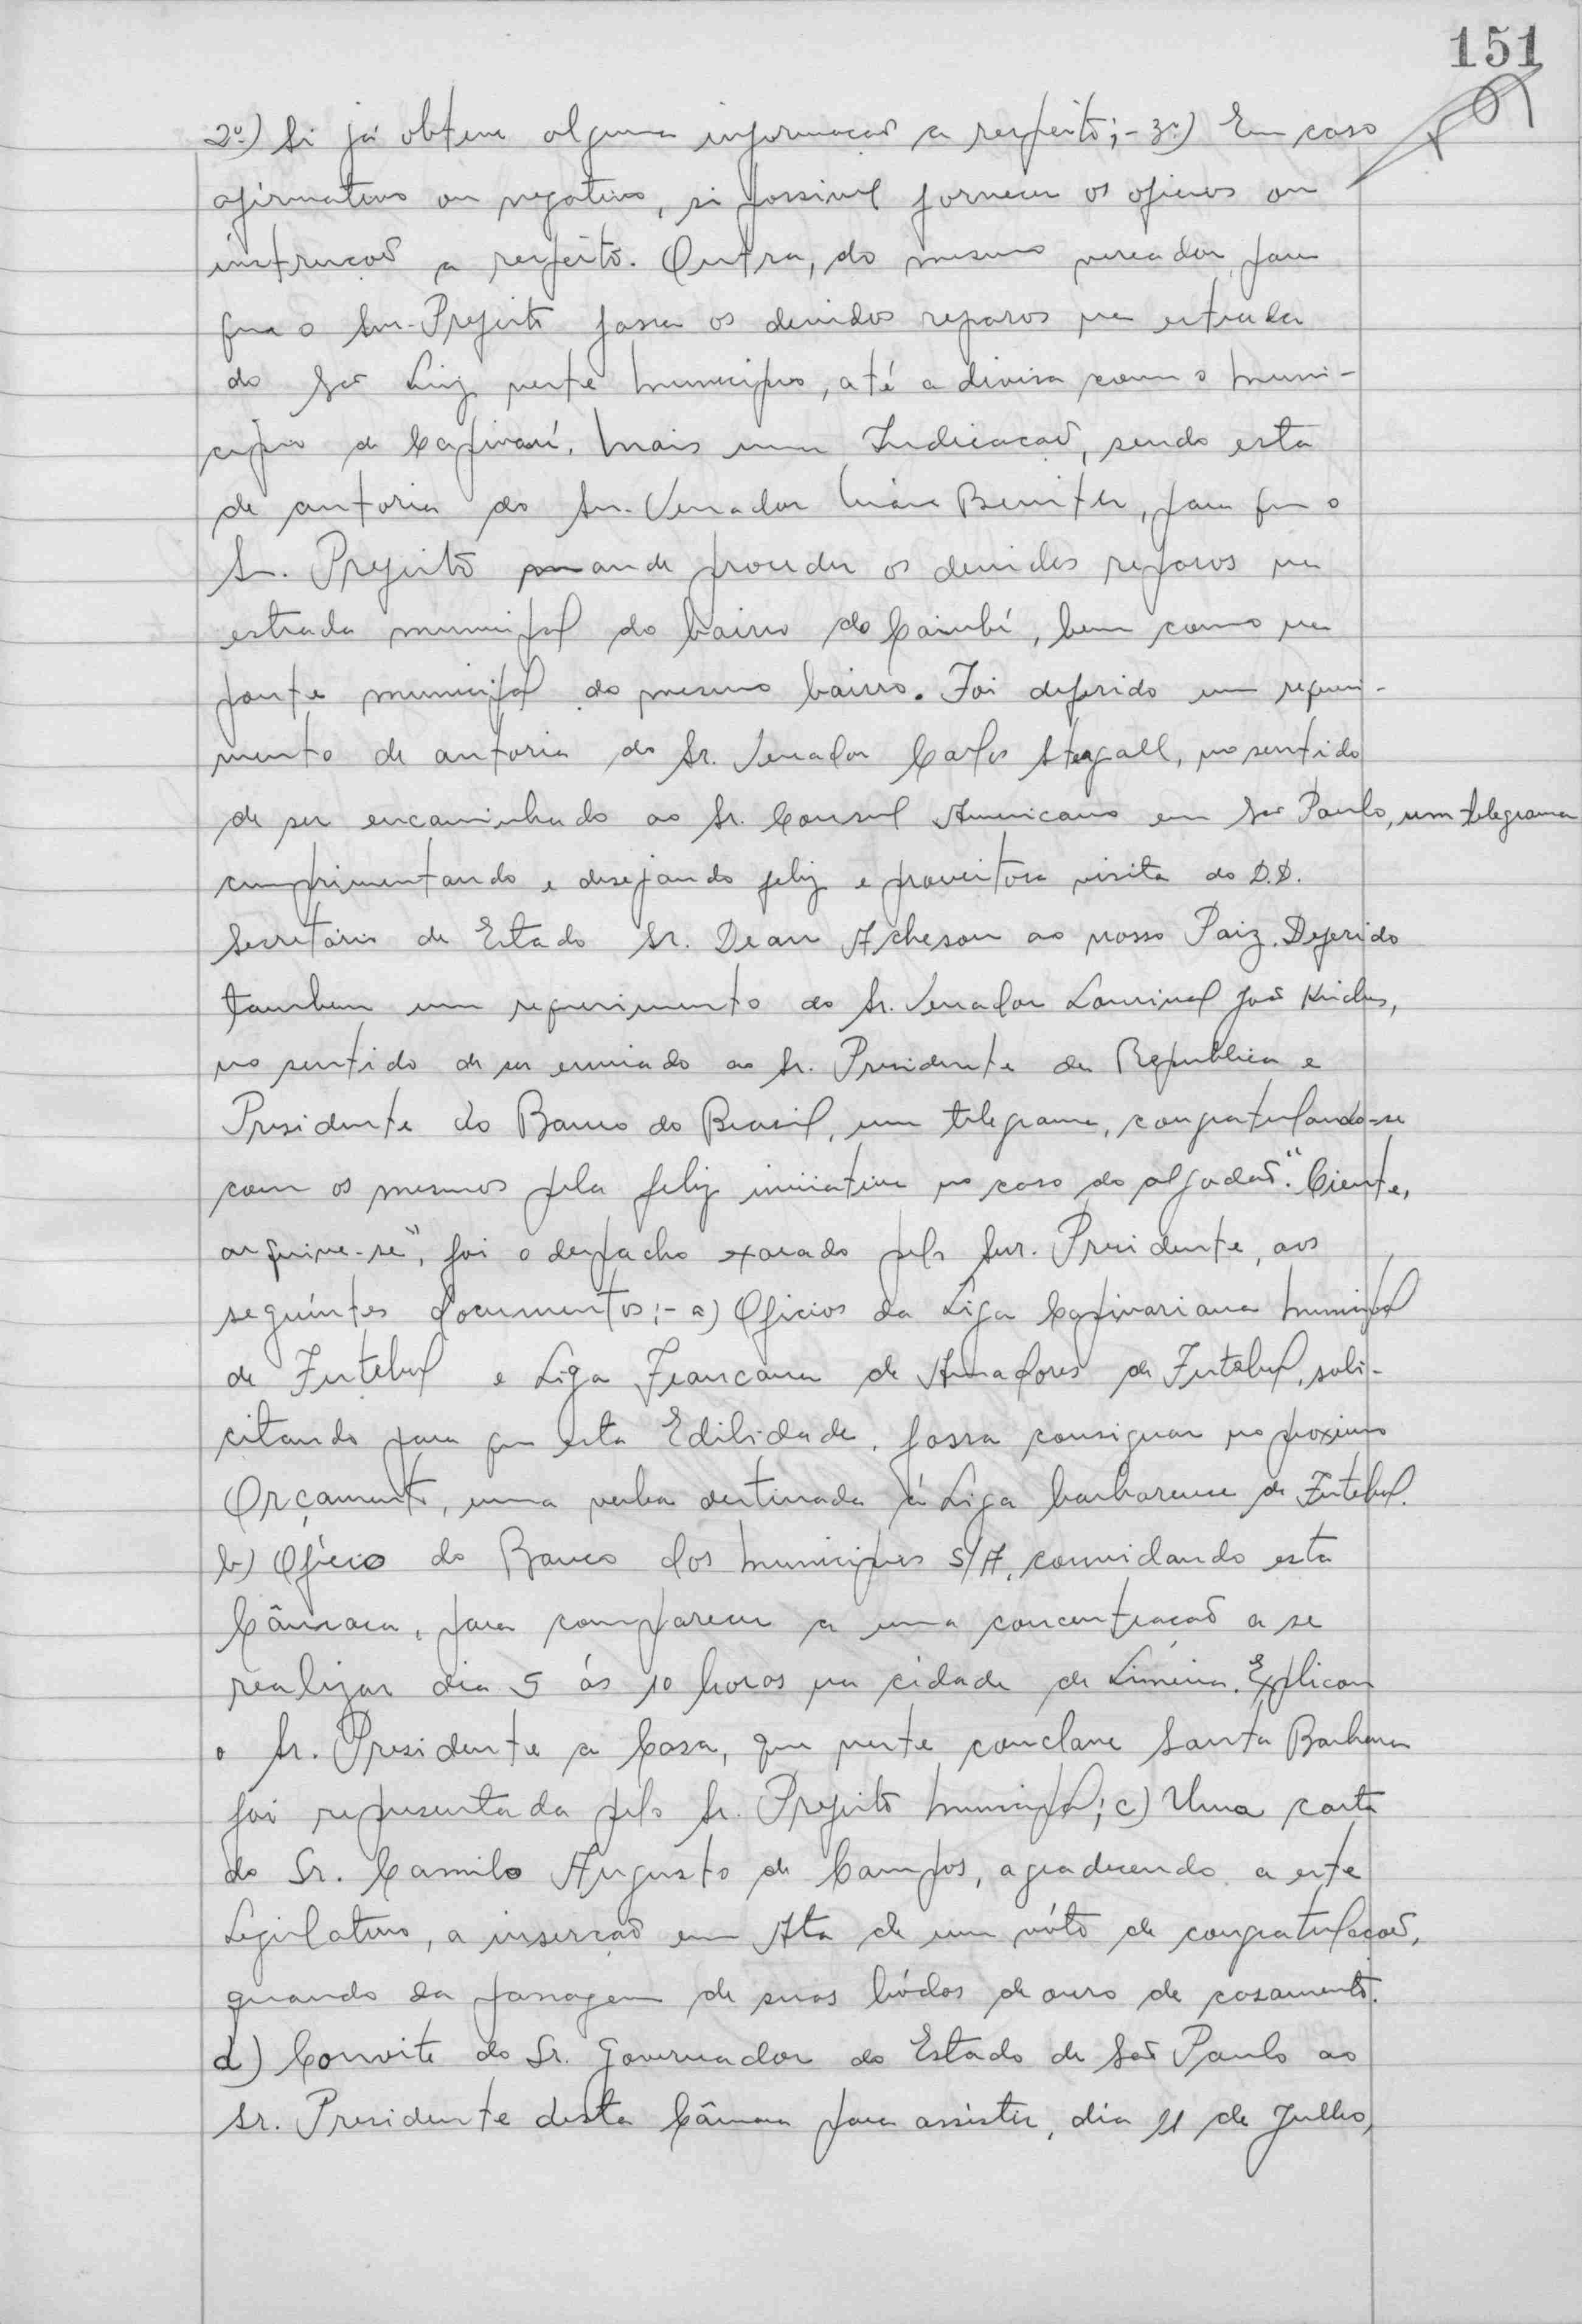 151
2º) Si já obteve alguma informacaõ a respeito;- 3º) Em caso
afirmativo ou negativo, si possivel fornecer os oficios ou
instrucaõ a respeito. Outra, do mesmo vereador, para
que o Snr. Prefeito possa os devidos reparos na estrada
do Saõ Luiz neste Municipio, até a divisa com o Muni-
cipio de Capivarí. Mais uma Indicacaõ, sendo esta
de autoria do Sr. Vereador Benites, para que o
Sr. Prefeito mande proceder os devidos reparos na
estrada municipal do bairro do Caiubí, bem como na
ponte municipal do mesmo bairro. Foi deferido um requeri-
mento de autoria do Sr. Vereador Carlos Steagall, no sentido
de ser encaminhado ao Sr. Consul Americano em Saõ Paulo, um telegrama
cumprimentando e desejando feliz e proveitosa visita do D.D.
Secretário de Estado Sr. Dean Acheson ao nosso Paiz. Deferido
tambem um requerimento do Sr. Vereador Lourival Joaõ
no sentido de ser enviado ao Sr. Presidente da Republica e
Presidente do Banco do Brasil, um telegrama, congratulando-se
com os mesmos pela feliz iniciativa no caso do algodaõ. "Ciente,
arquive-se", foi o despacho exarado pelo Snr. Presidente, aos
seguíntes documentos;- a) Oficios da Liga Capivariana Municipal
de Futebol e Liga Francana de Amadores de Futebol, soli-
citando para que esta Edilidade, possa consignar no proximo
Orçamento, uma verba destinada á Liga barbarense de Futebol.
b) Ofício do Banco dos Municipios S/A, convidando esta
Câmara, para comparecer a uma concentracaõ a se
realizar dia 5 ás 10 horas na cidade de Limeira. Explicou
o Sr. Presidente a Casa, que neste conclave Santa Barbara
foi representada pelo Sr. Prefeito Municipal; c) Uma carta
do Sr. Camilo Augusto de Campos, agradecendo a este
Legislativo, a insercaõ em Ata de um vóto de congratulacaõ,
quando da passagem de suas bódas de ouro de casamento.
d) Convite do Sr. Governador do Estado de Saõ Paulo ao
Sr. Presidente desta Câmara para assistir, dia 11 de Julho,